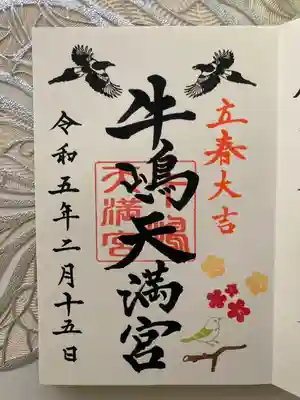 立春大吉
牛嶋天満宮
牛嶋天満宮
令和五年二月十五日